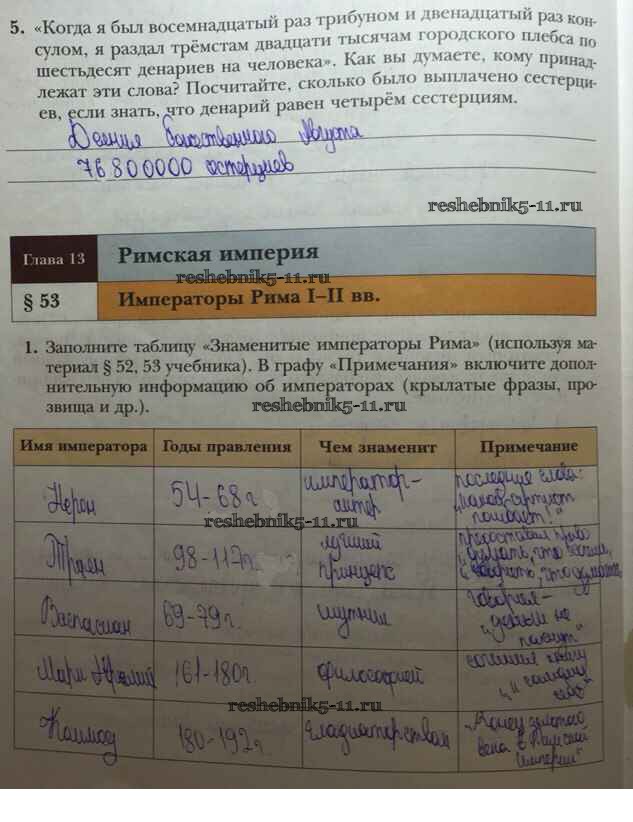 5. «Когда я был восемнадцатый раз трибуном и двенадцатый раз кон-
сулом, я раздал трёмстам двадцати тысячам городского плебса по
шестьдесят денариев на человека». Как вы думаете, кому принад-
лежат эти слова? Посчитайте, сколько было выплачено сестерци-
ев, если знать, что денарий равен четырём сестерциям.
Деяния божественного Августа
76 800000 сестерциев
reshebnik5-11.ru
Глава 13 Римская империя
reshebnik5-11.ru
§ 53 Императоры Рима I–II вв.
1. Заполните таблицу «Знаменитые императоры Рима» (используя ма-
териал § 52, 53 учебника). В графу «Примечания» включите допол-
нительную информацию об императорах (крылатые фразы, про-
звища и др.).
reshebnik5-11.ru
Имя императора Годы правления Чем знаменит Примечание
Нерон 54-68 г. император-
актер
последние слова:
"какой артист
погибает!"
reshebnik5-11.ru
Траян 98-117 г. лучший
принцепс
предоставил право
думать, что хотим,
и говорить, что думаем
Васпасиан 69-79 г. шутник
говорил-
"деньги не
пахнут"
Марк Аврелий 161-180 г. философией
сочинил книгу
" к самому
себе"
reshebnik5-11.ru
Коммод 180-192 г гладиаторством
"Конец золотого
века в Римской
Империи"